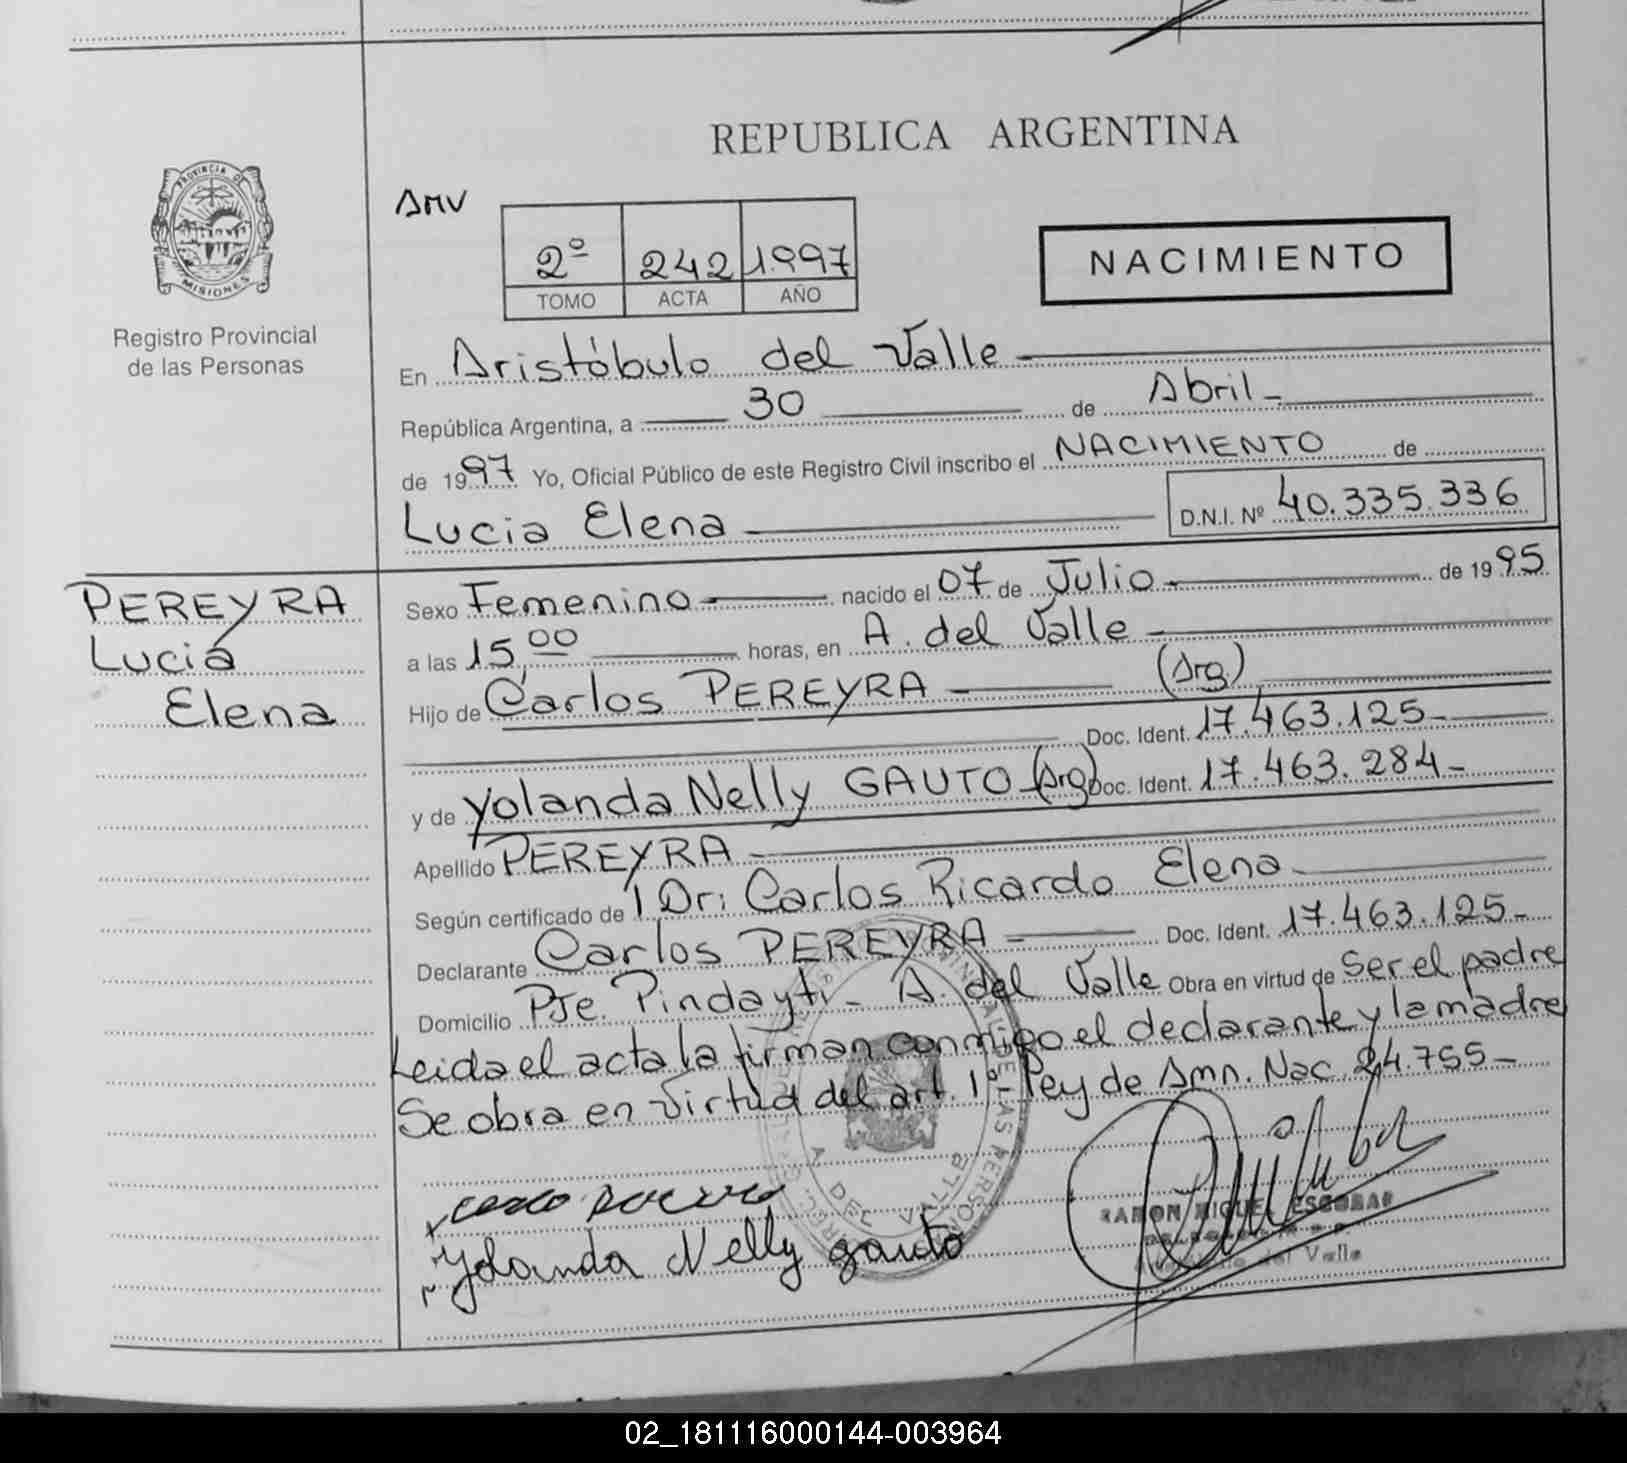 REPUBLICA ARGENTINA
PROVINCIA DE
MISIONES
Registro Provincial
de las Personas
AMV
2º 242 1.997
TOMO ACTA AÑO
NACIMIENTO
En Aristóbulo del Valle
República Argentina, a 30 de Abril
de 1997 Yo, Oficial Público de este Registro Civil inscribo el NACIMIENTO de
Lucia Elena D.N.I. Nº 40.335.336
PEREYRA
Lucia
Elena
Sexo Femenino nacido el 07 de Julio de 1995
a las 15,00 horas, en A. del Valle
Hijo de Carlos PEREYRA (Arg)
Doc. Ident. 17.463.125
y de Yolanda Nelly GAUTO (Arg) Doc. Ident. 17.463.284
Apellido PEREYRA
Según certificado de Dr: Carlos Ricardo Elena
Declarante Carlos PEREYRA Doc. Ident. 17.463.125
Domicilio Pje. Pindayti - A. del Valle Obra en virtud de Ser el padre
Leida el acta la firman conmigo el declarante y la madre
Se obra en virtud del art. 1º Ley de Amn. Nac. 24.755
A. DEL VALLE
Yolanda Nelly gauto
RAMON MIGUEL ESCOBAR
del Valle
02_181116000144-003964